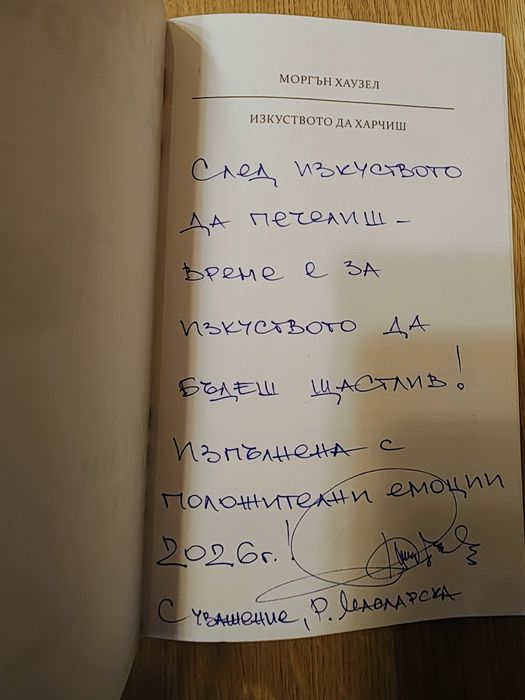 МОРГЪН ХАУЗЕЛ
ИЗКУСТВОТО ДА ХАРЧИШ
След изкуството
да печелиш –
време е за
изкуството да
бъдеш щастлив!
Изпълнена с
положителни емоции
2026г.!
С уважение, Р.